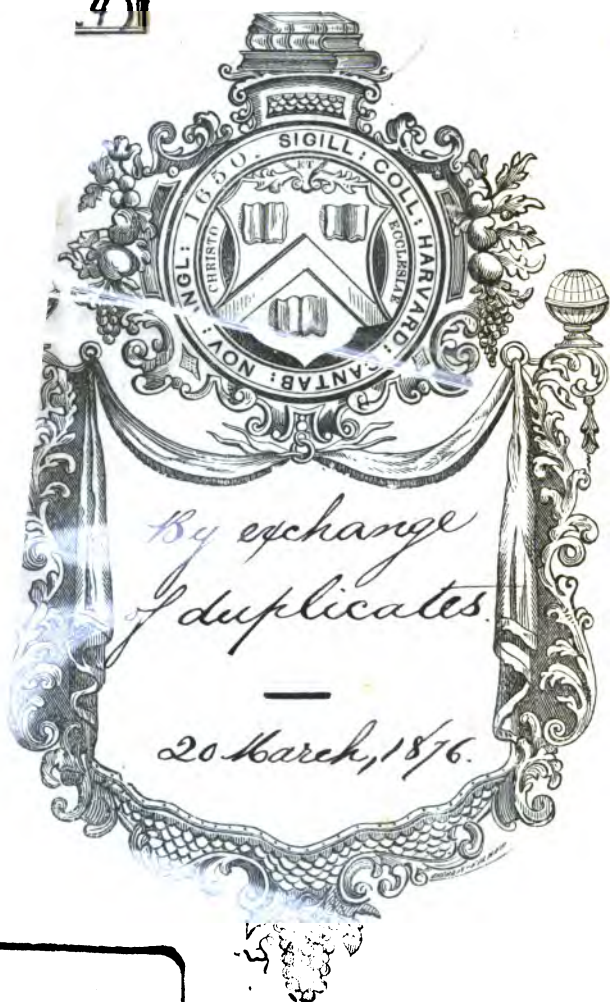 4
SIGILL: COLL: HARVARD: CANTAB: NOV: NGL: 1650.
ET
CHRISTO
ECCLESIAE
By exchange
of duplicates.
20 March, 1876.